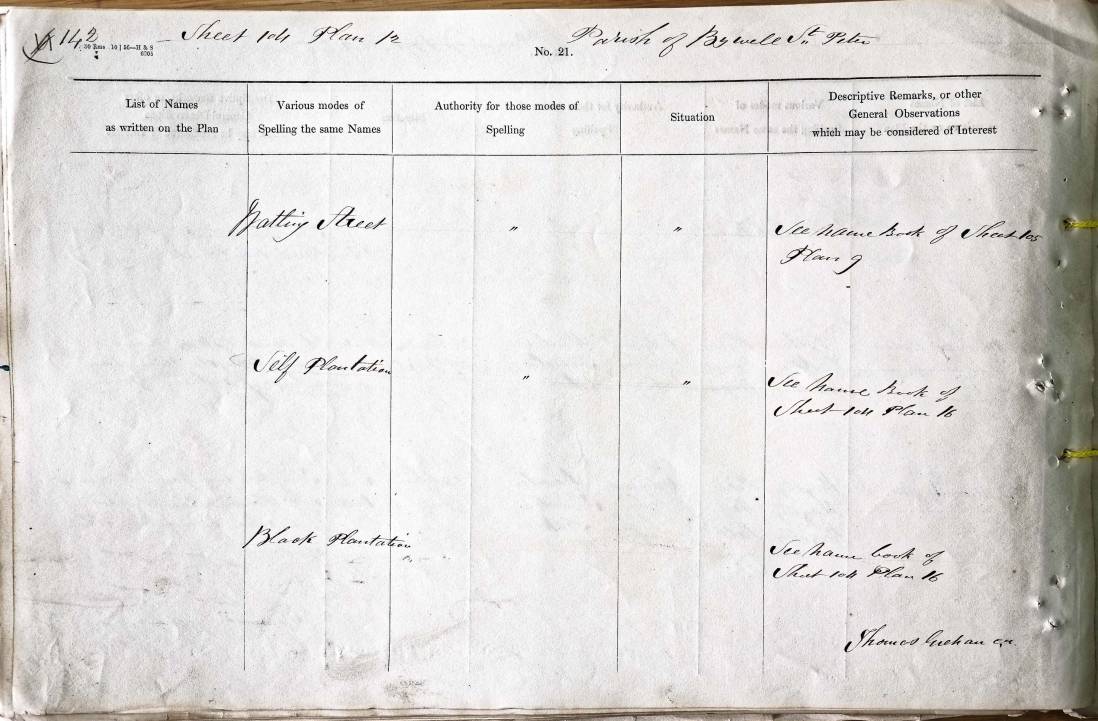 142
30 Rms 10 | 56—H & S
6205
Sheet 104 Plan 12
No. 21.
Parish of Bywell St. Peter
List of Names
as written on the Plan
Various modes of
Spelling the same Names
Authority for those modes of
Spelling
Situation
Descriptive Remarks, or other
General Observations
which may be considered of Interest
Watling Street
"
"
See Name Book of Sheet 105
Plan 9
Self Plantation
"
"
See Name Book of
Sheet 104 Plan 16
Black Plantation
See Name book of
Sheet 104 Plan 16
Thomas